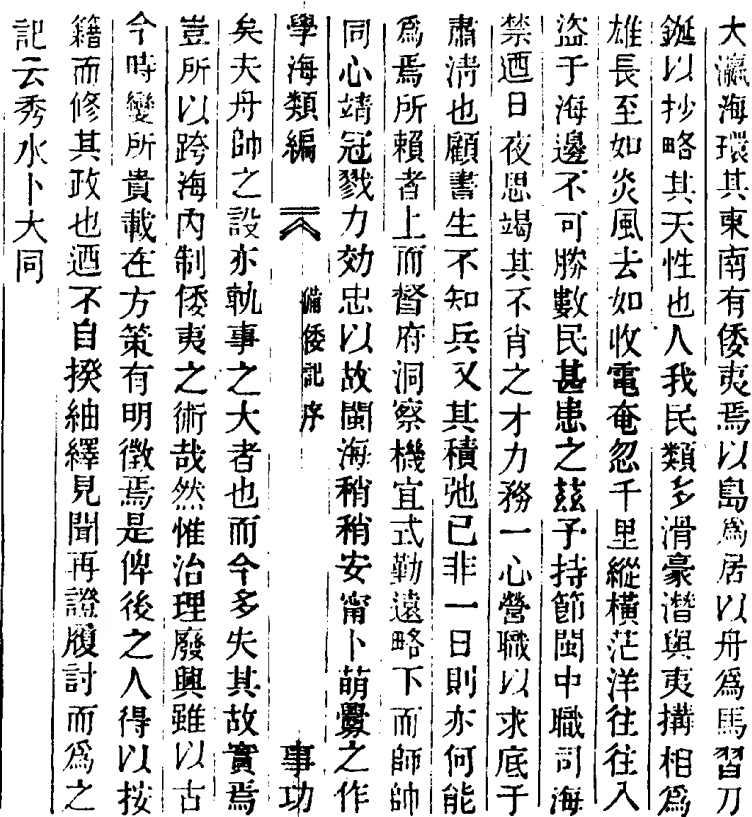 大瀛海環其東南有倭夷焉以島爲居以舟爲馬習刀
鋋以抄略其天性也人我民類多滑豪潛與夷搆相爲
雄長至如炎風去如收電奄忽千里縱橫茫洋往往入
盜于海邊不可勝數民甚患之兹予持節閩中職司海
禁迺日夜思竭其不肖之才力務一心營職以求底于
肅淸也顧書生不知兵又其積弛已非一日則亦何能
爲焉所賴者上而督府洞察機宜式勤遠略下而師帥
同心靖冠戮力効忠以故閩海稍稍安甯卜萌釁之作
學海類編 備倭記序 事功
矣夫舟師之設亦軌事之大者也而今多失其故實焉
豈所以跨海內制倭夷之術哉然惟治理廢興雖以古
今時變所貴載在方策有明徵焉是俾後之人得以按
籍而修其政也迺不自揆紬繹見聞再證履討而爲之
記云秀水卜大同